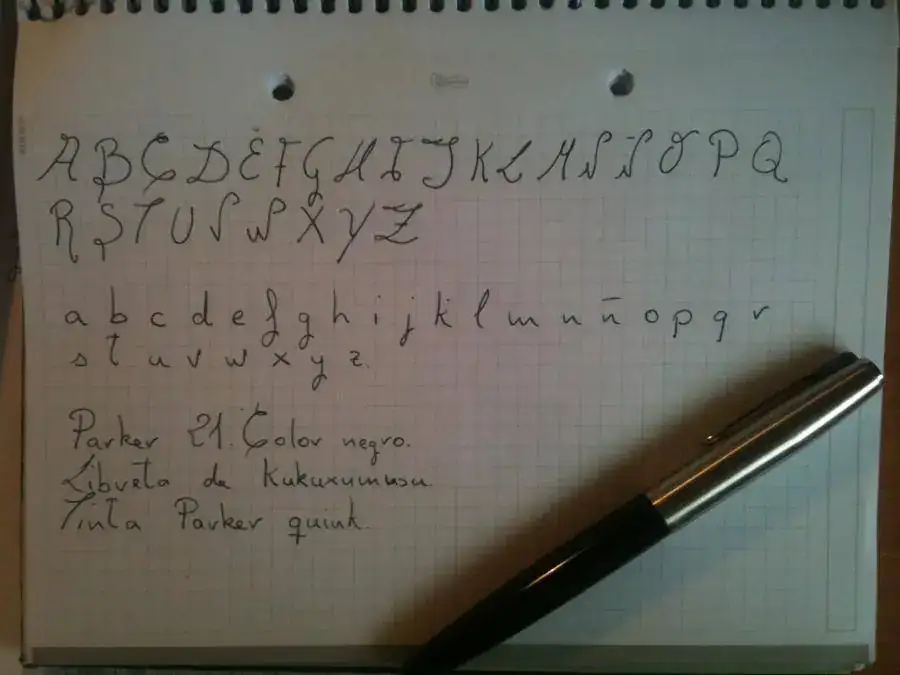 A B C D E F G H I J K L M N Ñ O P Q
R S T U V W X Y Z
a b c d e f g h i j k l m n ñ o p q r
s t u v w x y z.
Parker 21. Color negro.
Libreta de Kukuxumusu.
Tinta Parker quink.